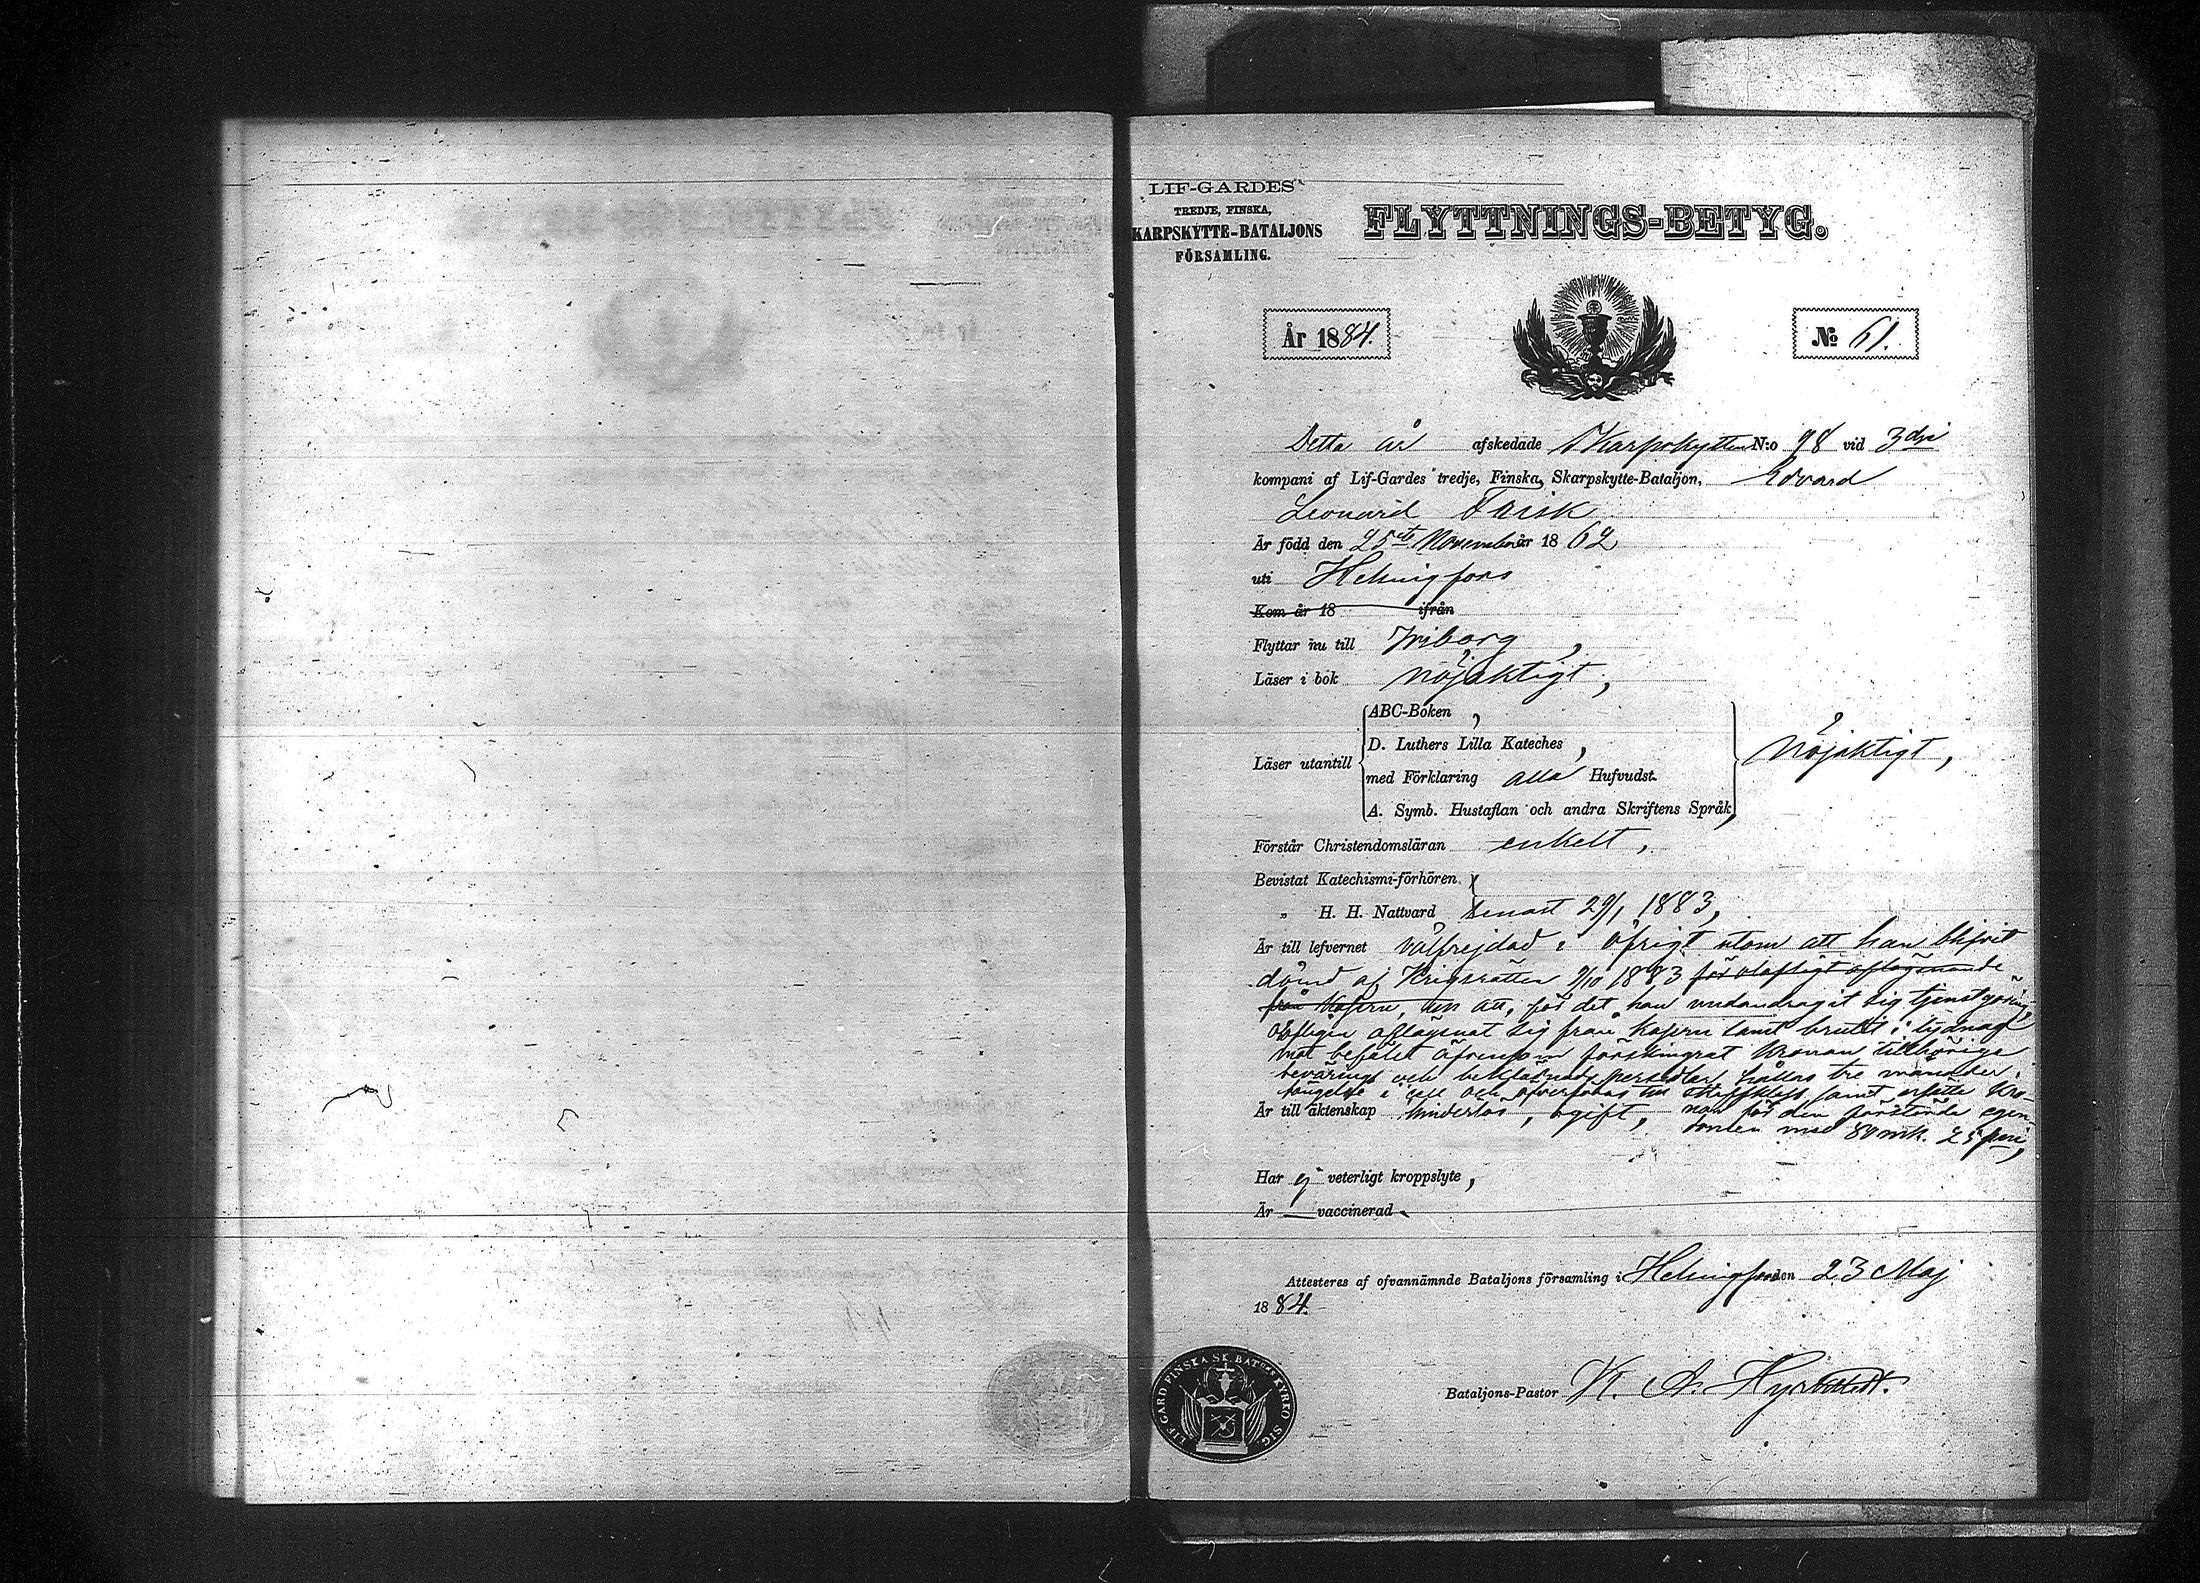 LIF-GARDES
TREDJE, FINSKA,
KARPSKYTTE-BATALJONS
FÖRSAMLING.
FLYTTNINGS-BETYG.
År 1884.
№ 61.
Detta år afskedade Skarpskytten N:o 98 vid 3dje
kompani af Lif-Gardes tredje, Finska, Skarpskytte-Bataljon, Edvard
Leonard Frisk
Är född den 25te November år 1862
uti Helsingfors
Kom år 18 ifrån
Flyttar nu till Wiborg,
Läser i bok nöjaktigt,
Läser utantill
ABC-Boken,
D. Luthers Lilla Kateches,
med Förklaring alla Hufvudst.
A. Symb. Hustaflan och andra Skriftens Språk,
nöjaktigt,
Förstår Christendomsläran enkelt,
Bevistat Katechismi-förhören
„ H. H. Nattvard senast 29/1 1883,
Är till lefvernet välfrejdad i öfrigt utom att han blifvit
dömd af Krigsrätten 9/10 1883 för olofligt aflägsnande
från Kasern, att, för det han undandragit sig tjenstgöring,
olofligen aflägsnat sig från kasern samt brutit i lydnad
mot befälet äfvensom förskingrat kronan tillhöriga
bevärings och beklädnads persedlar, hållas tre månader i
fängelse i cell och öfverföras till straffklass samt ersätta kro-
Är till äktenskap hinderlös, ogift, nan för den förstörda egen-
domen med 84 mk. 25 pni,
Har ej veterligt kroppslyte,
Är — vaccinerad.
Attesteras af ofvannämnde Bataljons församling i Helsingfors den 23 Maj
1884.
Bataljons-Pastor K. A.
LIF GARD FINSKA SK. BATons KYRKO SIG